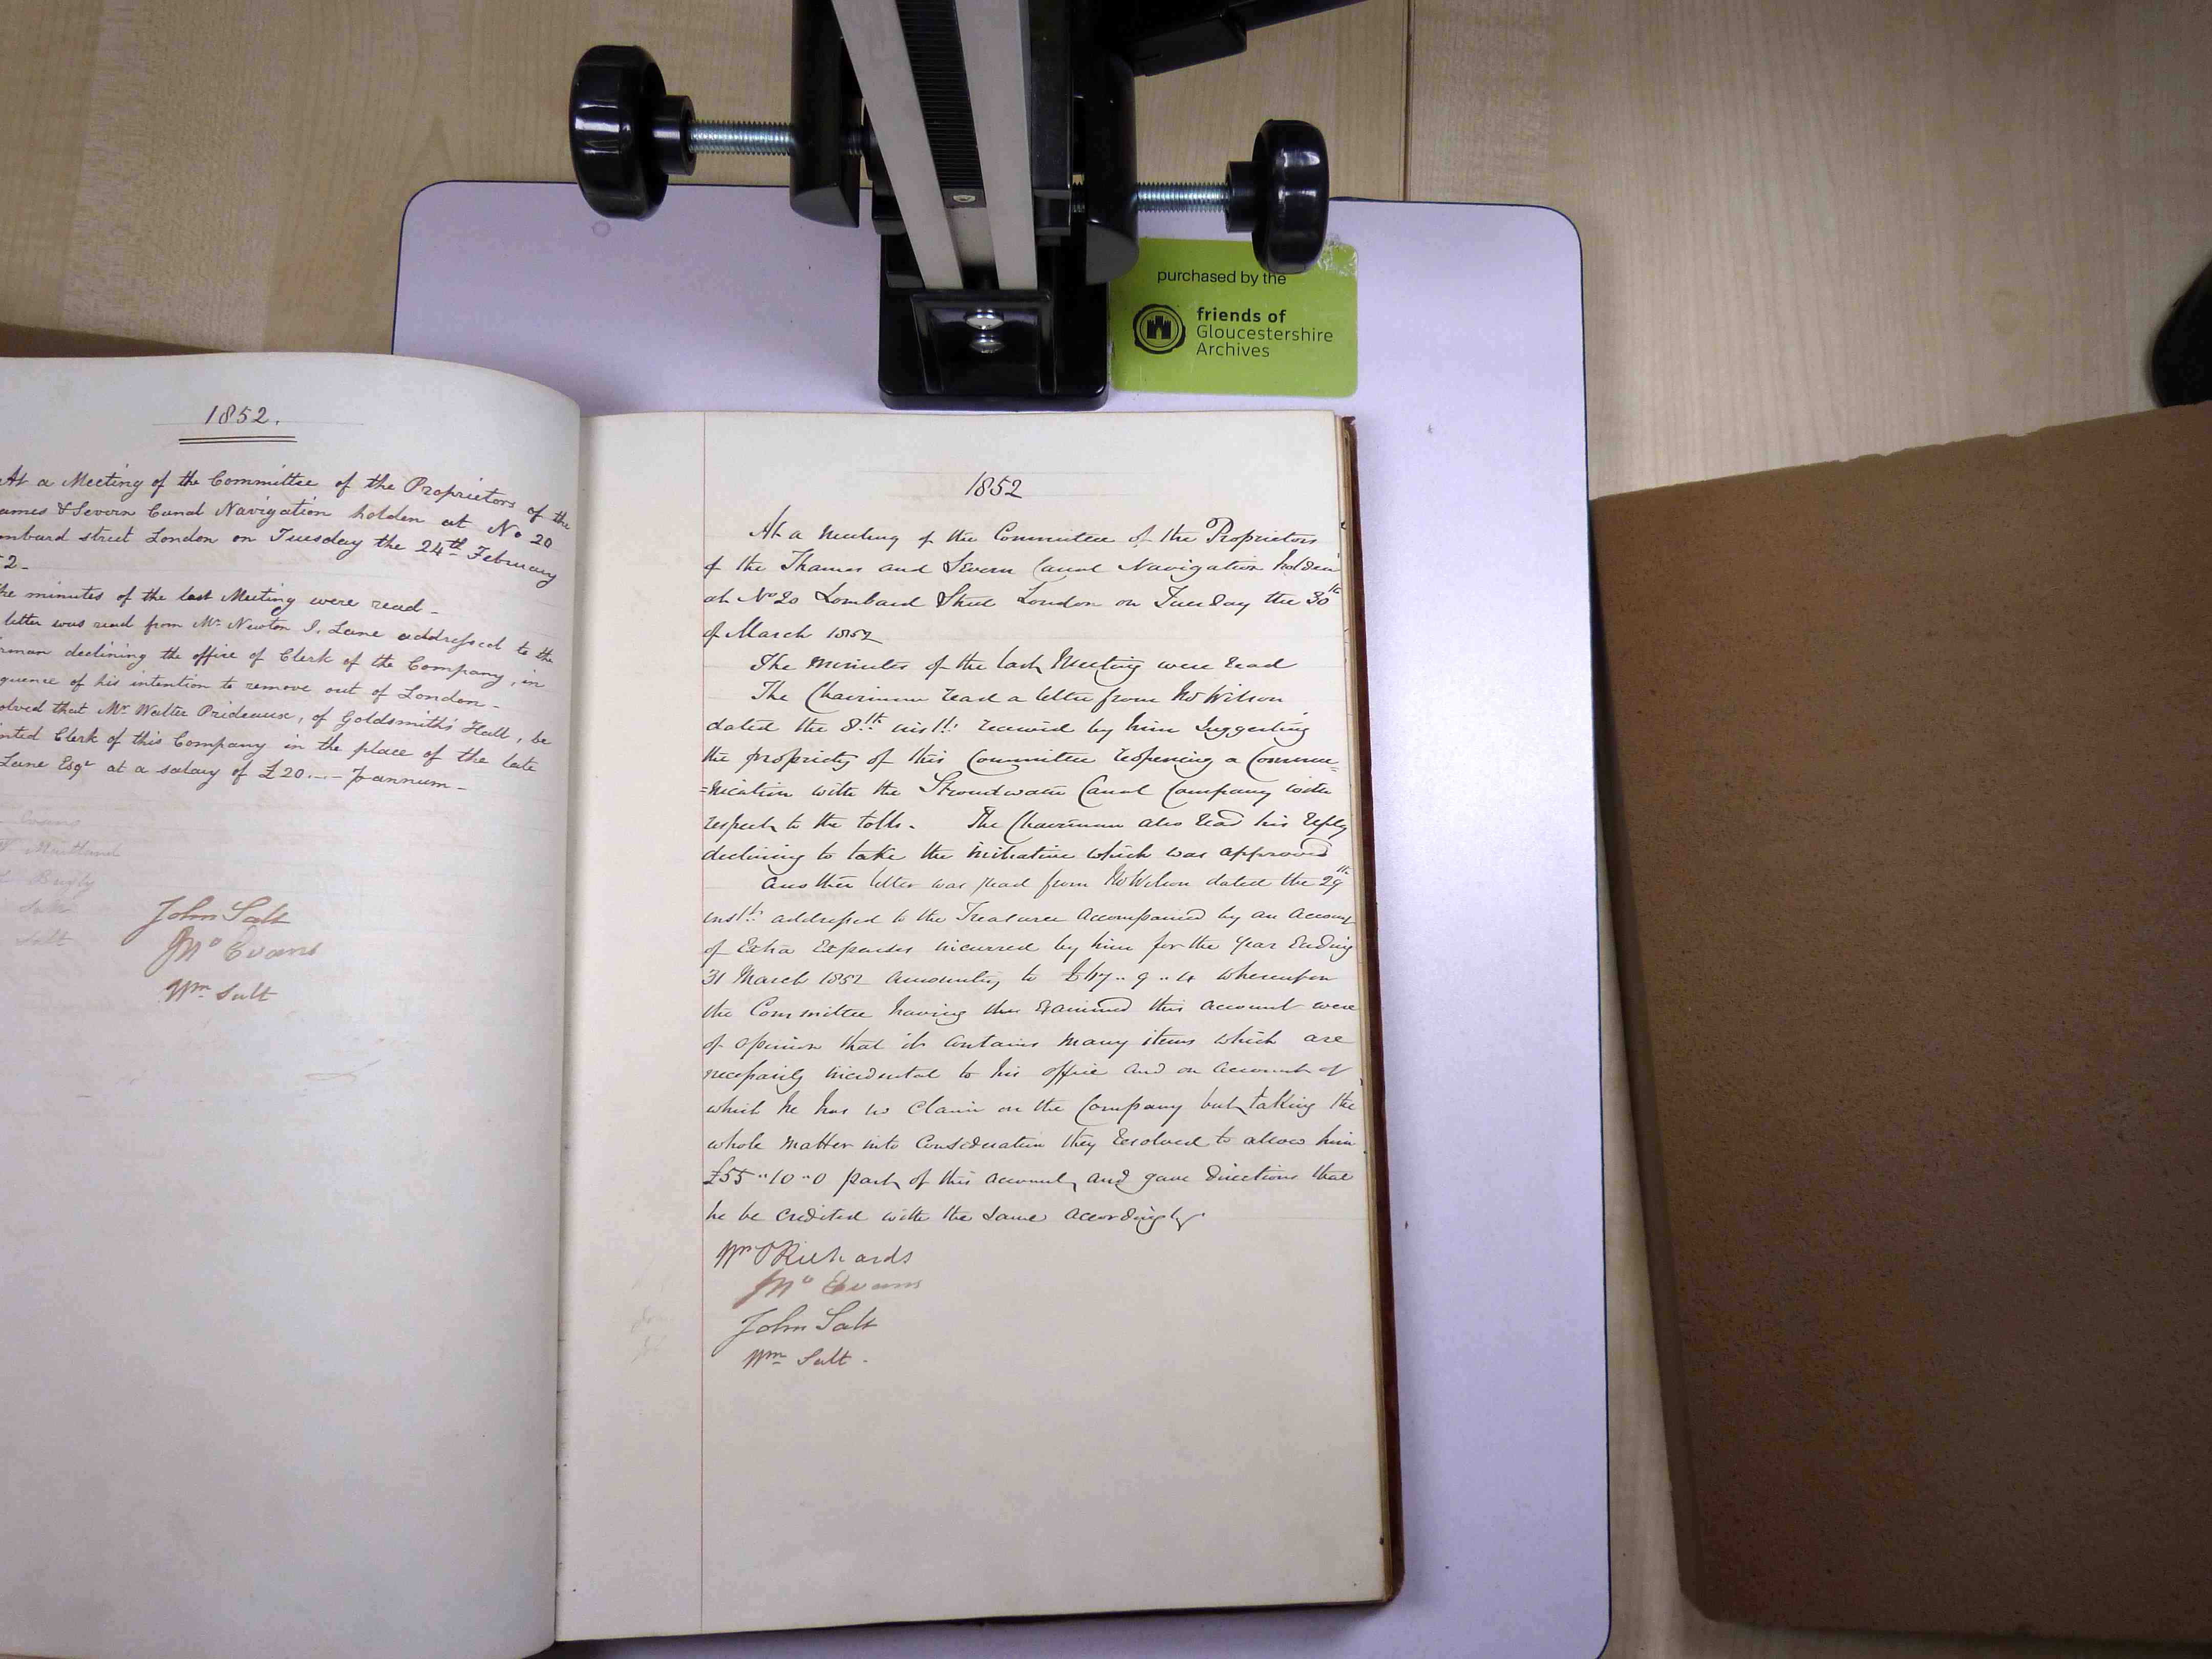 purchased by the
friends of
Gloucestershire
Archives
1852.
At a Meeting of the Committee of the Proprietors of the
ames & Severn Canal Navigation holden at No 20
mbard street London on Tuesday the 24th February
2-
he minutes of the last Meeting were read-
letter was read from Mr Newton J. Lane addressed to the
rman declining the office of Clerk of the Company, in
quence of his intention to remove out of London-
olved that Mr Walter Prideaux, of Goldsmith's Hall, be
nted Clerk of this Company in the place of the late
Lane Esqr at a salary of £20.-.- P annum-
Evans
Maitland
Salt
Salt
John Salt
Mo Evans
Wm Salt
1852
At a Meeting of the Committee of the Proprietors
of the Thames and Severn Canal Navigation holden
at No 20 Lombard Street London on Tuesday the 30th
of March 1852
The Minutes of the last Meeting were read
The Chairman read a letter from Mr Wilson
dated the 8th inst: received by him suggesting
the propriety of this Committee reopening a Commu=
=nication with the Stroudwater Canal Company with
respect to the tolls. The Chairman also read his reply
declining to take the initiative which was approved
Another letter was read from Mr Wilson dated the 29th
inst: addressed to the Treasurer accompanied by an account
of Extra Expenses incurred by him for the Year Ending
31 March 1852 amounting to 9 " 4 whereupon
the Committee having examined this account were
of opinion that it contains many items which are
necessarily incidental to his office and on account of
which he has no claim on the Company but taking the
whole matter into consideration they resolved to allow him
£55 " 10 " 0 part of this account, and gave directions that
he be credited with the same accordingly.
Wm P Richards
Mo Evans
John Salt
Wm Salt.